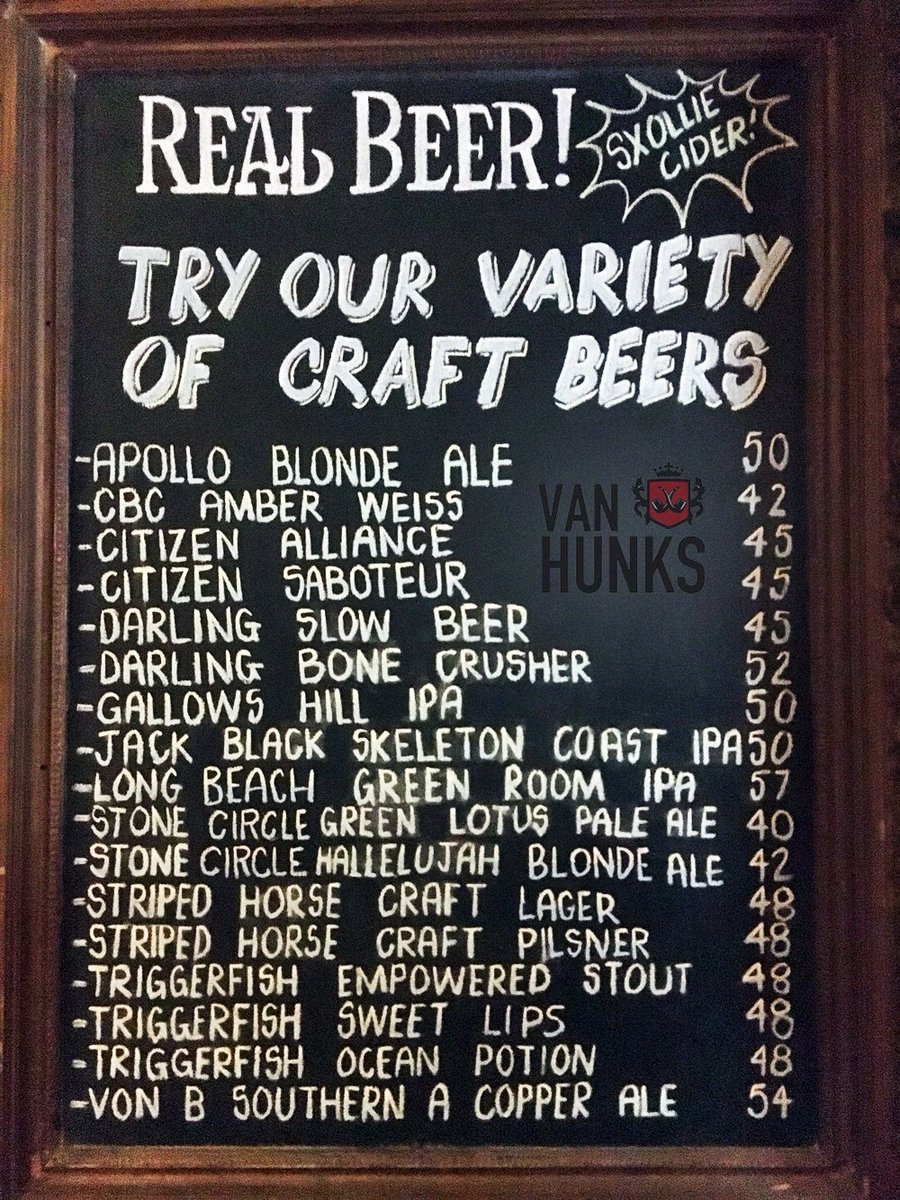 REAL BEER!
SXOLLIE
CIDER!
TRY OUR VARIETY
OF CRAFT BEERS
-APOLLO BLONDE ALE 50
-CBC AMBER WEISS 42
VAN
HUNKS
-CITIZEN ALLIANCE 45
-CITIZEN SABOTEUR 45
-DARLING SLOW BEER 45
-DARLING BONE CRUSHER 52
-GALLOWS HILL IPA 50
-JACK BLACK SKELETON COAST IPA 50
-LONG BEACH GREEN ROOM IPA 57
-STONE CIRCLE GREEN LOTUS PALE ALE 40
-STONE CIRCLE HALLELUJAH BLONDE ALE 42
-STRIPED HORSE CRAFT LAGER 48
-STRIPED HORSE CRAFT PILSNER 48
-TRIGGERFISH EMPOWERED STOUT 48
-TRIGGERFISH SWEET LIPS 48
-TRIGGERFISH OCEAN POTION 48
-VON B SOUTHERN A COPPER ALE 54